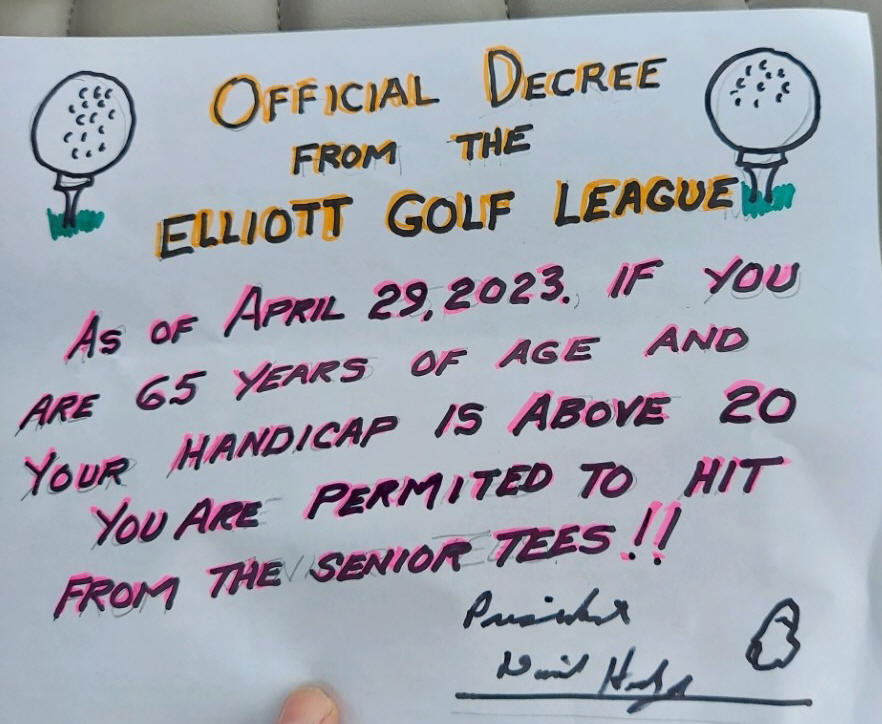 OFFICIAL DECREE
FROM THE
ELLIOTT GOLF LEAGUE
AS OF APRIL 29, 2023. IF YOU
ARE 65 YEARS OF AGE AND
YOUR HANDICAP IS ABOVE 20
YOU ARE PERMITED TO HIT
FROM THE SENIOR TEES!!
President